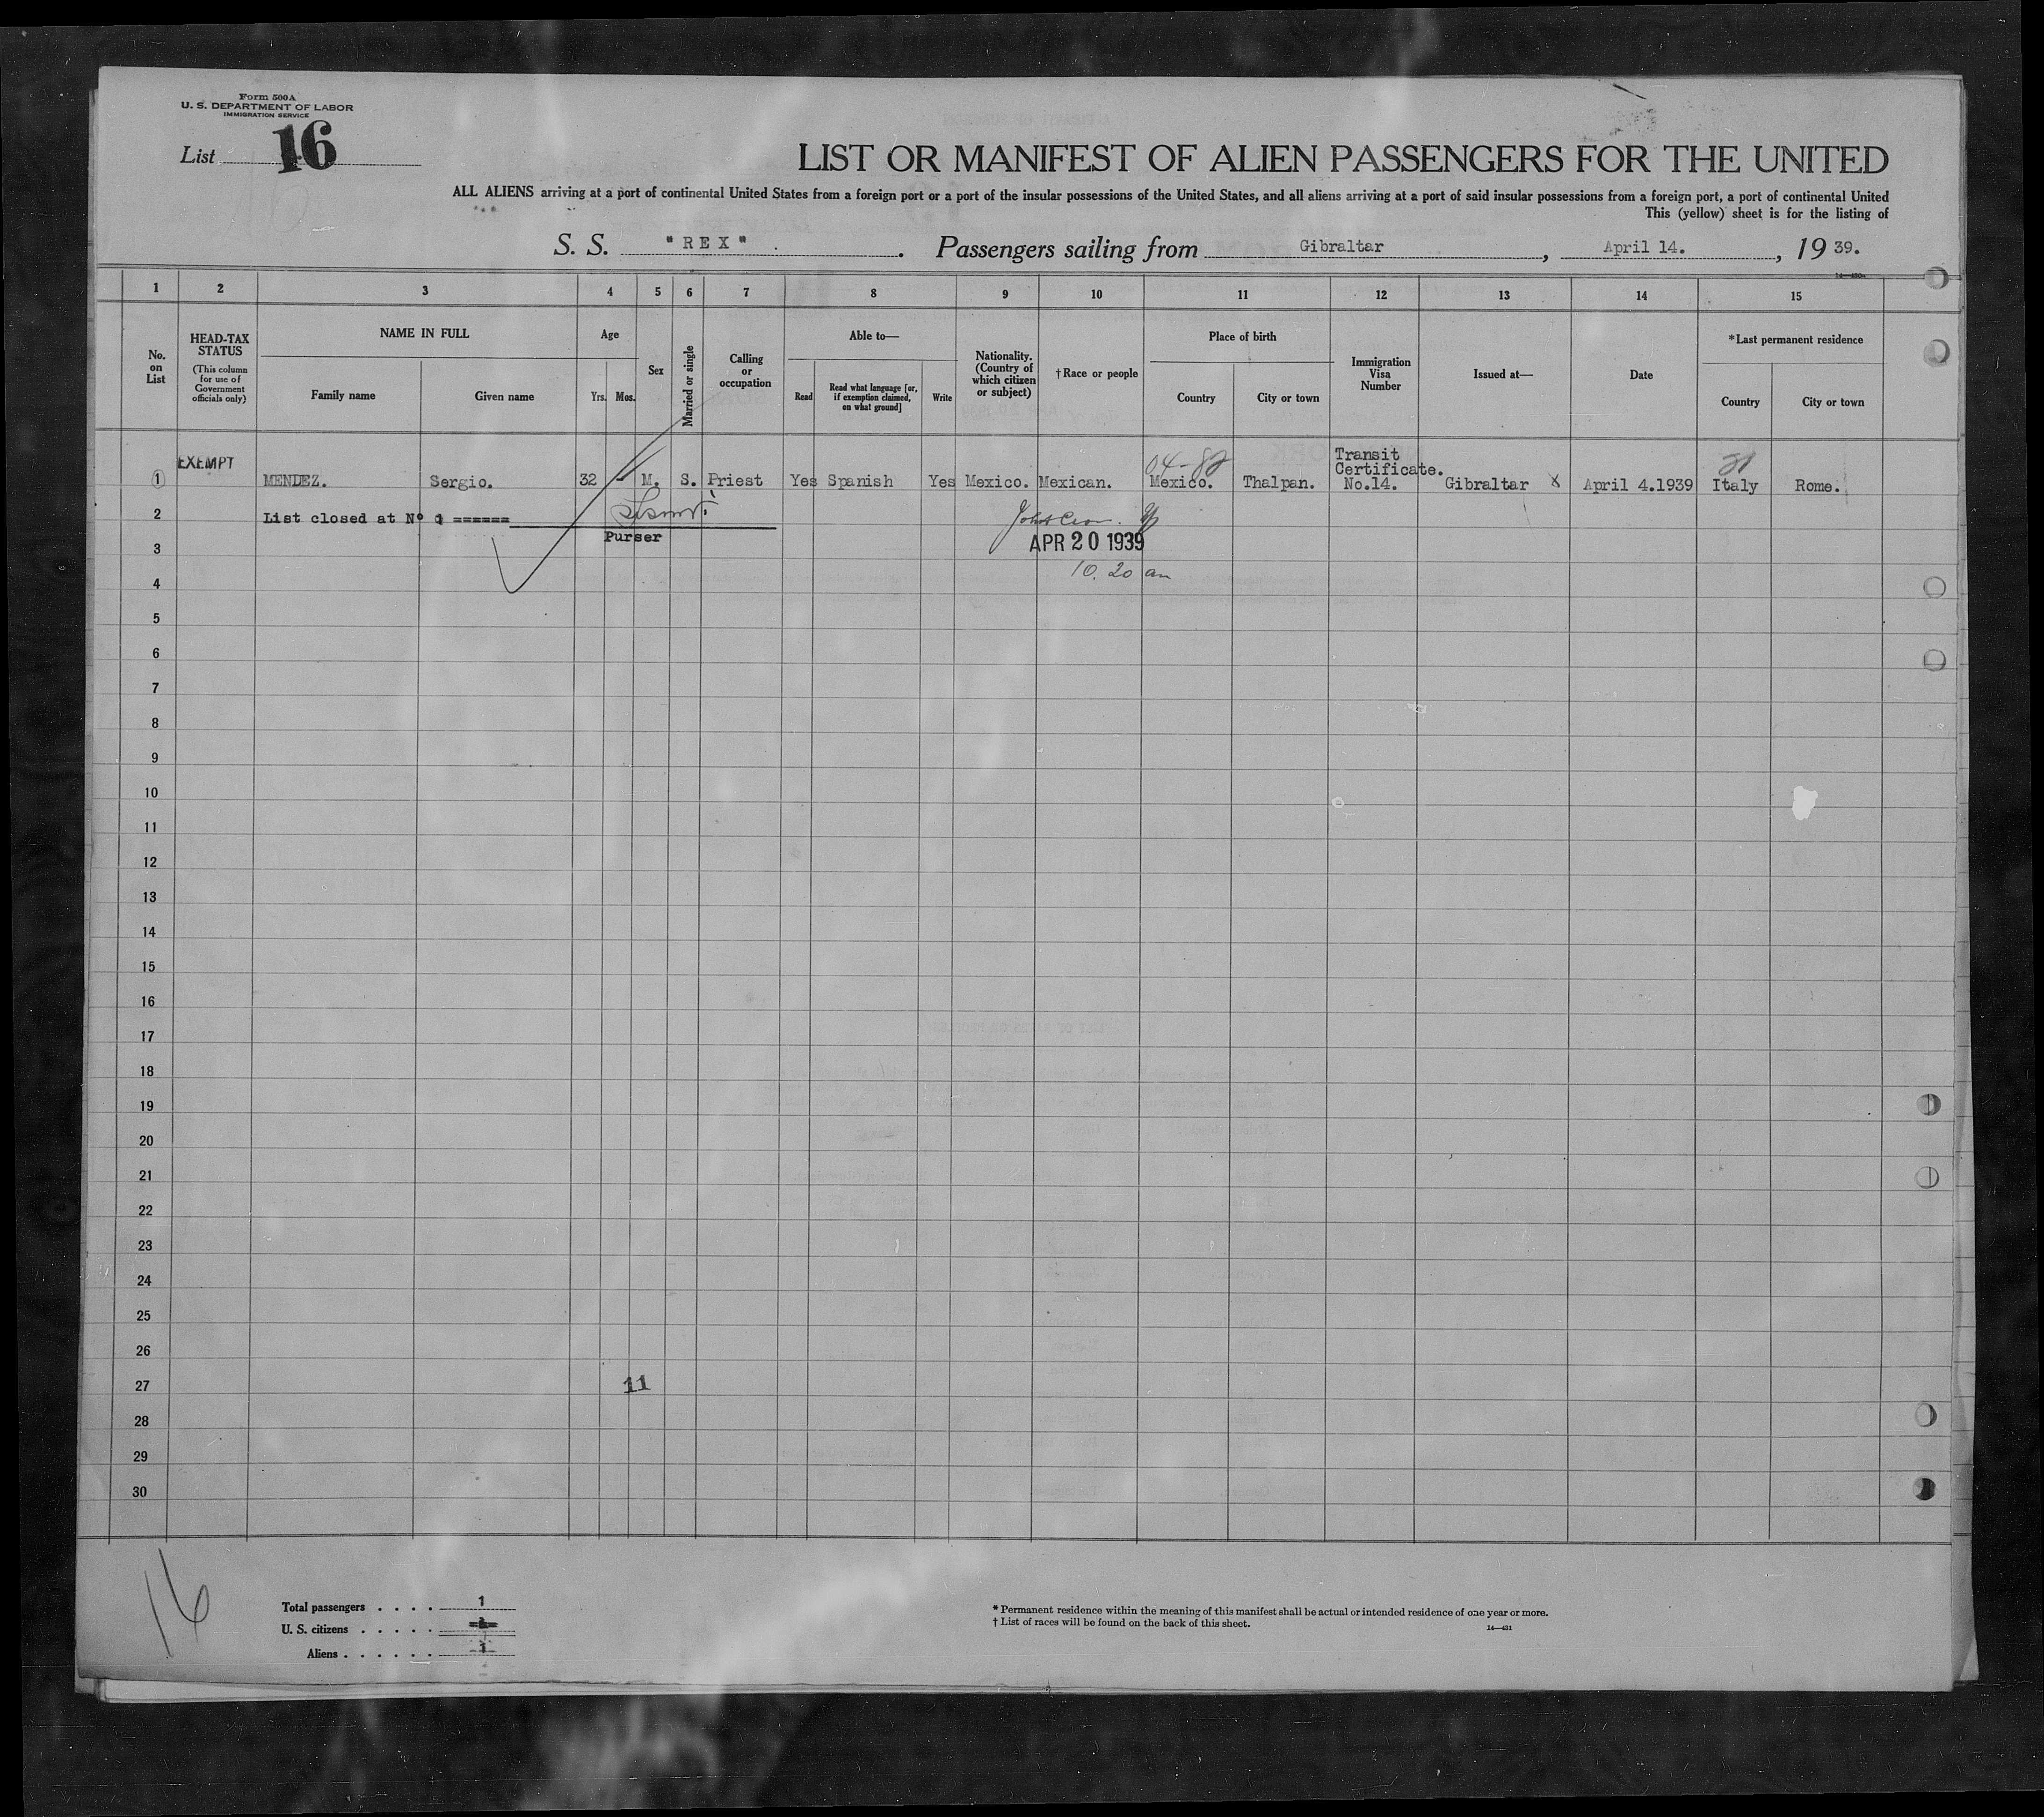 Form 500A
U. S. DEPARTMENT OF LABOR
IMMIGRATION SERVICE
List 16
LIST OR MANIFEST OF ALIEN PASSENGERS FOR THE UNITED
ALL ALIENS arriving at a port of continental United States from a foreign port or a port of the insular possessions of the United States, and all aliens arriving at a port of said insular possessions from a foreign port, a port of continental United
This (yellow) sheet is for the listing of
S. S. "REX" . Passengers sailing from Gibraltar , April 14. , 19 39.
1 2 3 4 5 6 7 8 9 10 11 12 13 14 15
No. on List
HEAD-TAX STATUS (This column for use of Government officials only)
NAME IN FULL
Family name Given name
Age
Yrs. Mos.
Sex
Married or single
Calling or occupation
Able to—
Read Read what language [or, if exemption claimed, on what ground] Write
Nationality. (Country of which citizen or subject)
†Race or people
Place of birth
Country City or town
Immigration Visa Number
Issued at—
Date
*Last permanent residence
Country City or town
1 EXEMPT MENDEZ. Sergio. 32 - M. S. Priest Yes Spanish Yes Mexico. Mexican. 04-82 Mexico. Thalpan. Transit Certificate. No.14. Gibraltar X April 4.1939 Italy Rome.
2 List closed at Nº 1 ======
Purser
3 APR 20 1939
4 10.20 am
5
6
7
8
9
10
11
12
13
14
15
16
17
18
19
20
21
22
23
24
25
26
27 11
28
29
30
16
Total passengers . . . . 1
U. S. citizens . . . . .
Aliens . . . . . . 1
* Permanent residence within the meaning of this manifest shall be actual or intended residence of one year or more.
† List of races will be found on the back of this sheet.
14—431